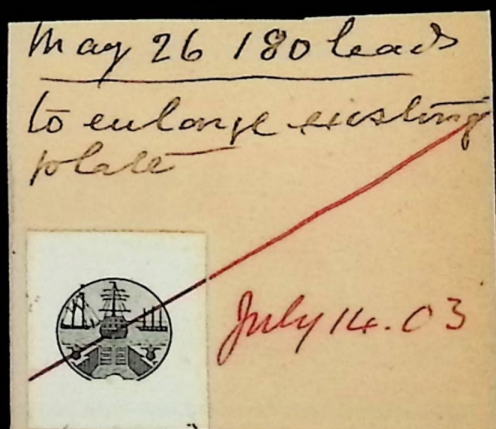 May 26 180 leads
to enlarge existing
plate
July 14.03